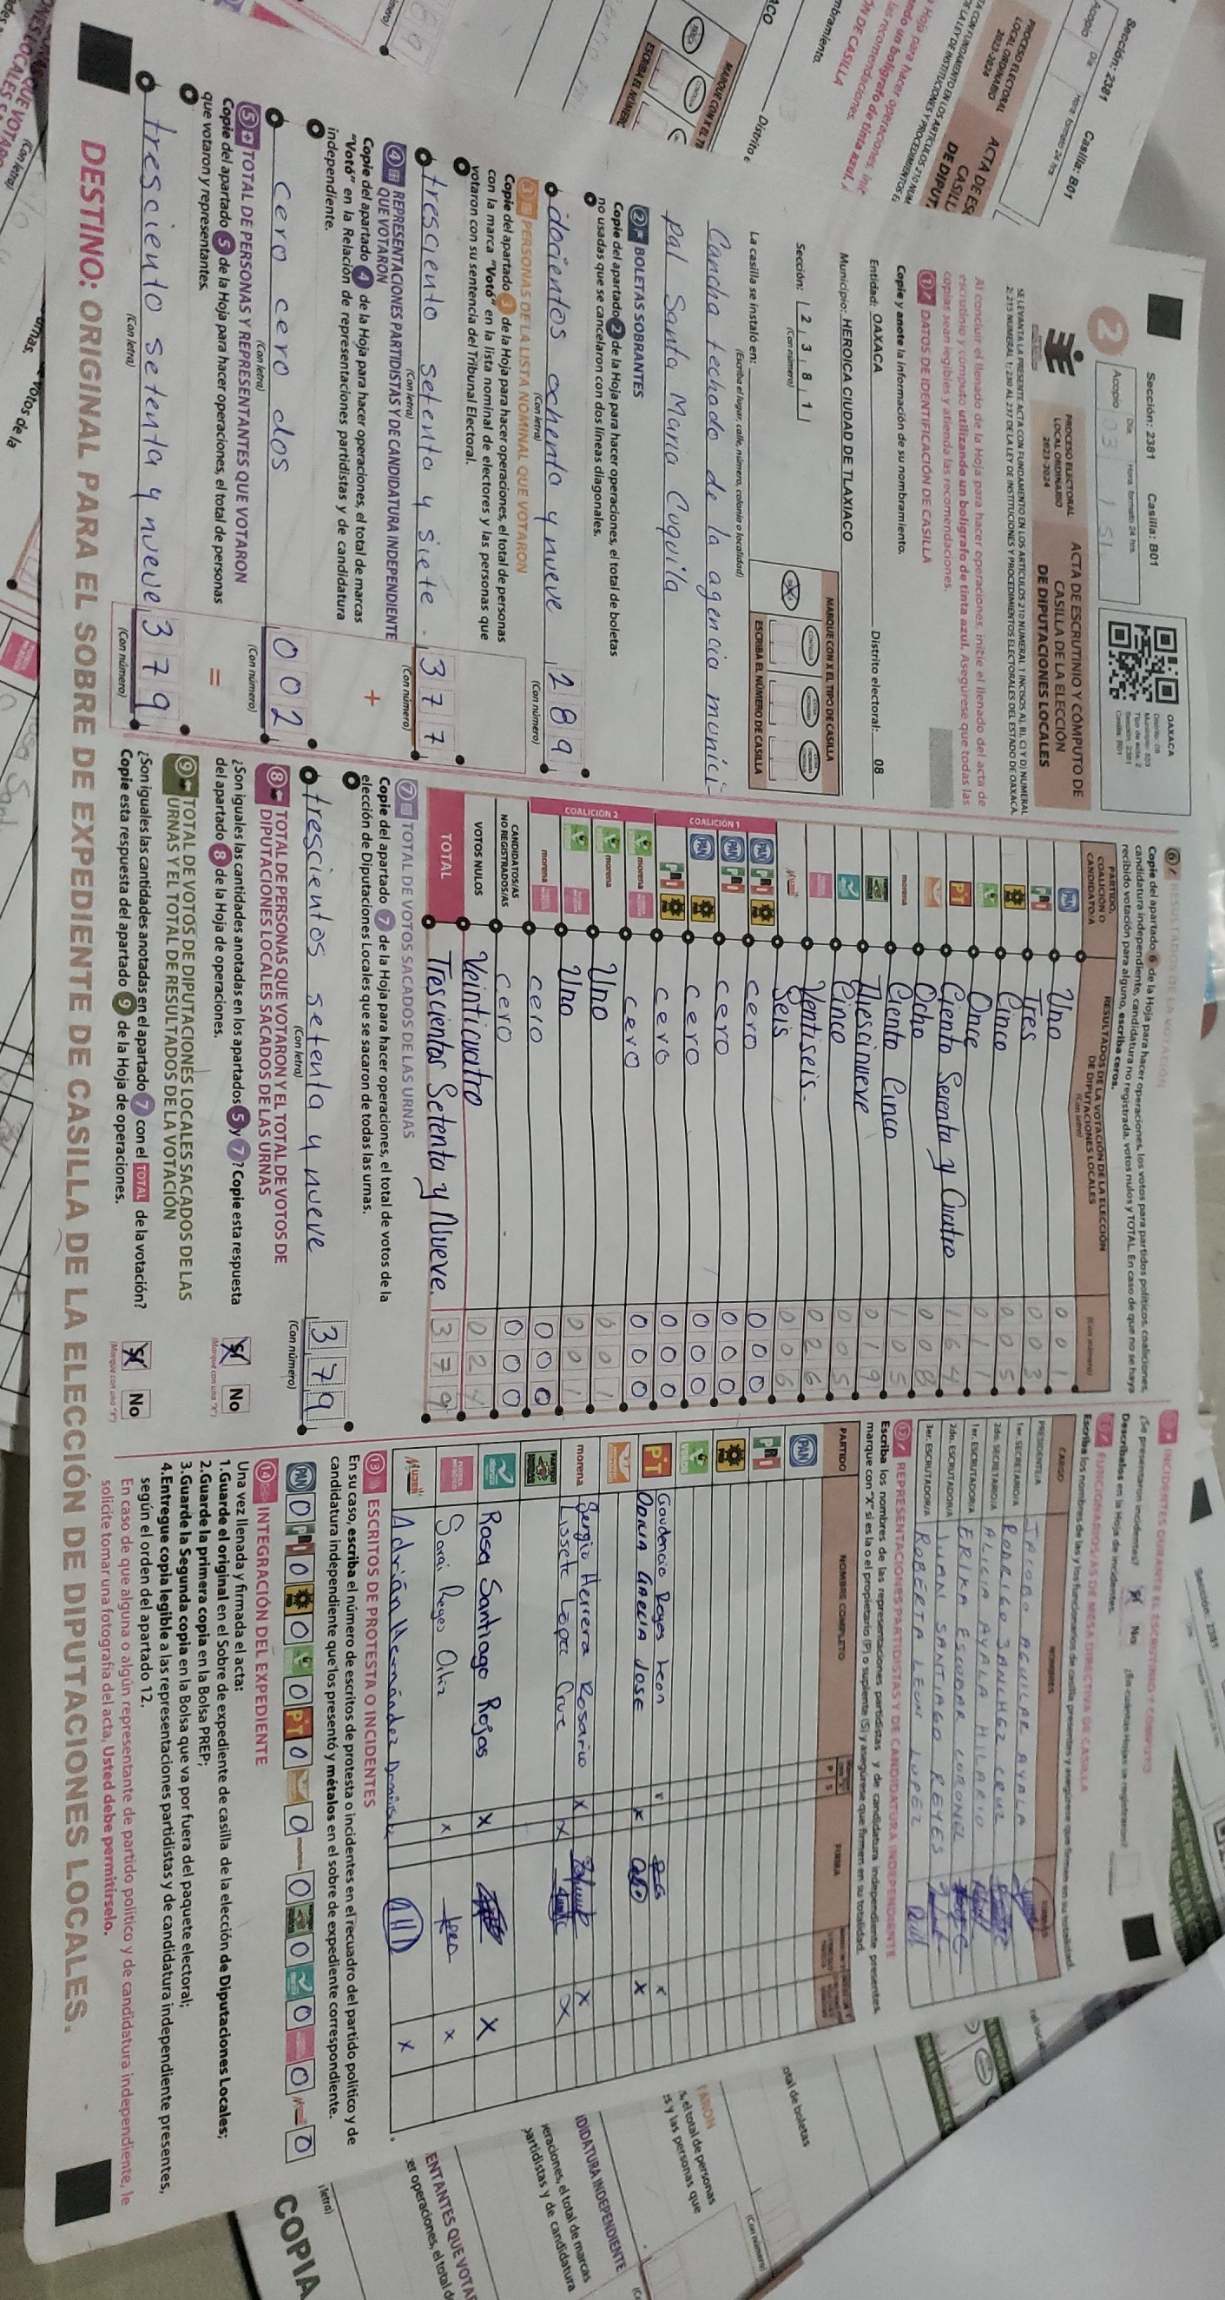 Sección: 2381 Casilla: B01
OAXACA
2
Acopio
PROCESO ELECTORAL
LOCAL ORDINARIO
2023-2024
ACTA DE ESCRUTINIO Y CÓMPUTO DE
CASILLA DE LA ELECCIÓN
DE DIPUTACIONES LOCALES
SE LEVANTA LA PRESENTE ACTA CON FUNDAMENTO EN LOS ARTÍCULOS 210 NUMERAL 1 INCISOS A), B), C) Y D) NUMERAL
2; 215 NUMERAL 1; 230 AL 237 DE LA LEY DE INSTITUCIONES Y PROCEDIMIENTOS ELECTORALES DEL ESTADO DE OAXACA
Al concluir el llenado de la Hoja para hacer operaciones, inicie el llenado del acta de
escrutinio y cómputo utilizando un bolígrafo de tinta azul. Asegúrese que todas las
copias sean legibles y atienda las recomendaciones.
1 DATOS DE IDENTIFICACIÓN DE CASILLA
Copie y anote la información de su nombramiento.
Entidad: OAXACA Distrito electoral: 08
Municipio: HEROICA CIUDAD DE TLAXIACO
Sección: 2 3 8 1
(Con número)
MARQUE CON X EL TIPO DE CASILLA
ESCRIBA EL NÚMERO DE CASILLA
La casilla se instaló en:
(Escriba el lugar, calle, número, colonia o localidad)
Cancha techado de la agencia munici
pal Santa María Cuquila
2 BOLETAS SOBRANTES
Copie del apartado 2 de la Hoja para hacer operaciones, el total de boletas
no usadas que se cancelaron con dos líneas diagonales.
docientos ochenta y nueve 289
(Con letra) (Con número)
3 PERSONAS DE LA LISTA NOMINAL QUE VOTARON
Copie del apartado 3 de la Hoja para hacer operaciones, el total de personas
con la marca "Votó" en la lista nominal de electores y las personas que
votaron con su sentencia del Tribunal Electoral.
tresciento setenta y siete. 377
(Con letra) (Con número)
4 REPRESENTACIONES PARTIDISTAS Y DE CANDIDATURA INDEPENDIENTE
QUE VOTARON
Copie del apartado 4 de la Hoja para hacer operaciones, el total de marcas
"Votó" en la Relación de representaciones partidistas y de candidatura
independiente.
+
cero cero dos 002
(Con letra) (Con número)
5 TOTAL DE PERSONAS Y REPRESENTANTES QUE VOTARON
Copie del apartado 5 de la Hoja para hacer operaciones, el total de personas
que votaron y representantes.
=
tresciento setenta y nueve 379
(Con letra) (Con número)
6 RESULTADOS DE LA VOTACIÓN
Copie del apartado 6 de la Hoja para hacer operaciones, los votos para partidos políticos, coaliciones,
candidatura independiente, candidatura no registrada, votos nulos y TOTAL. En caso de que no se haya
recibido votación para alguno, escriba ceros.
PARTIDO,
COALICIÓN O
CANDIDATO/A
RESULTADOS DE LA VOTACIÓN DE LA ELECCIÓN
DE DIPUTACIONES LOCALES
(Con letra) (Con número)
PAN Uno 001
PRI Tres 003
Cinco 005
Once 011
PT Ciento Sesenta y Cuatro 164
Ocho 008
morena Ciento Cinco 105
Diescinueve 019
Cinco 005
Ventiseis. 026
Seis 006
COALICIÓN 1
PAN PRI cero 000
PAN PRI cero 000
PAN cero 000
PRI cero 000
COALICIÓN 2
morena cero 000
morena Uno 001
Uno 001
morena cero 000
CANDIDATOS/AS
NO REGISTRADOS/AS cero 000
VOTOS NULOS Veinticuatro 024
TOTAL Trescientos Setenta y Nueve. 379
7 TOTAL DE VOTOS SACADOS DE LAS URNAS
Copie del apartado 7 de la Hoja para hacer operaciones, el total de votos de la
elección de Diputaciones Locales que se sacaron de todas las urnas.
trescientos setenta y nueve 379
(Con letra) (Con número)
8 TOTAL DE PERSONAS QUE VOTARON Y EL TOTAL DE VOTOS DE
DIPUTACIONES LOCALES SACADOS DE LAS URNAS
¿Son iguales las cantidades anotadas en los apartados 5 y 7? Copie esta respuesta
del apartado 8 de la Hoja de operaciones.
Sí No
9 TOTAL DE VOTOS DE DIPUTACIONES LOCALES SACADOS DE LAS
URNAS Y EL TOTAL DE RESULTADOS DE LA VOTACIÓN
¿Son iguales las cantidades anotadas en el apartado 7 con el TOTAL de la votación?
Copie esta respuesta del apartado 9 de la Hoja de operaciones.
Sí No
INCIDENTES DURANTE EL ESCRUTINIO Y CÓMPUTO
¿Se presentaron incidentes? No
Descríbalos en la Hoja de incidentes.
FUNCIONARIOS/AS DE MESA DIRECTIVA DE CASILLA
Escriba los nombres de las y los funcionarios de casilla presentes y asegúrese que firmen en su totalidad.
CARGO NOMBRES
PRESIDENTE/A JACOBO AGUILAR AYALA
1er. SECRETARIO/A RODRIGO SANCHEZ CRUZ
2do. SECRETARIO/A ALICIA AYALA HILARIO
1er. ESCRUTADOR/A ERIKA ESCOBAR CORONEL
2do. ESCRUTADOR/A JUAN SANTIAGO REYES
3er. ESCRUTADOR/A ROBERTA LEON LOPEZ
12 REPRESENTACIONES PARTIDISTAS Y DE CANDIDATURA INDEPENDIENTE
Escriba los nombres de las representaciones partidistas y de candidatura independiente presentes,
marque con "X" si es la o el propietario (P) o suplente (S) y asegúrese que firmen en su totalidad.
PARTIDO NOMBRE COMPLETO P S FIRMA
PAN
PRI
PT Gaudencio Reyes Leon
DONIA GARCIA JOSE X X
morena Sergio Herrera Rosario X X
Lissete Lopez Cruz X X
Rosa Santiago Rojas X X
Sarai Reyes Ortiz X X
Adrián Hernández X
13 ESCRITOS DE PROTESTA O INCIDENTES
En su caso, escriba el número de escritos de protesta o incidentes en el recuadro del partido político y de
candidatura independiente que los presentó y métalos en el sobre de expediente correspondiente.
PAN 0 PRI 0 0 0 PT 0 0 0 0 0 0 0
14 INTEGRACIÓN DEL EXPEDIENTE
Una vez llenada y firmada el acta:
1.Guarde el original en el Sobre de expediente de casilla de la elección de Diputaciones Locales;
2.Guarde la primera copia en la Bolsa PREP;
3.Guarde la Segunda copia en la Bolsa que va por fuera del paquete electoral;
4.Entregue copia legible a las representaciones partidistas y de candidatura independiente presentes,
según el orden del apartado 12.
En caso de que alguna o algún representante de partido político y de candidatura independiente, le
solicite tomar una fotografía del acta, Usted debe permitírselo.
DESTINO: ORIGINAL PARA EL SOBRE DE EXPEDIENTE DE CASILLA DE LA ELECCIÓN DE DIPUTACIONES LOCALES.
COPIA